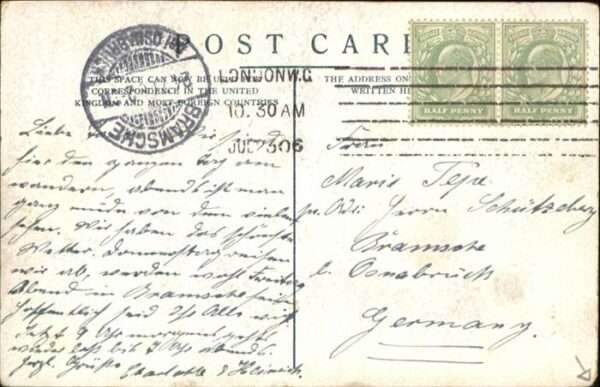 POST CARD
THIS SPACE CAN NOW BE USED FOR
CORRESPONDENCE IN THE UNITED
KINGDOM AND MOST FOREIGN COUNTRIES
THE ADDRESS ON
WRITTEN HE
LONDON W.C
10.30 AM
JUL 23 06
BRAMSCHE
HALF PENNY
HALF PENNY
Liebe Wir sind
hier den ganzen Tag am
wandern, abends ist man
ganz müde von dem vielen
sehen. Wir haben das schönste
Wetter. Donnerstag reisen
wir ab, werden wohl Freitag
Abend in Bramsche sein.
Hoffentlich seid Ihr Alle
Jetzt 9 Uhr morgens geht
wieder los bis 7 Uhr abends.
Herzl. Grüße Charlotte & Heinrich.
Frau
Marie Tepe
Herrn Schützeberg
Bramsche
b. Osnabrück
Germany.